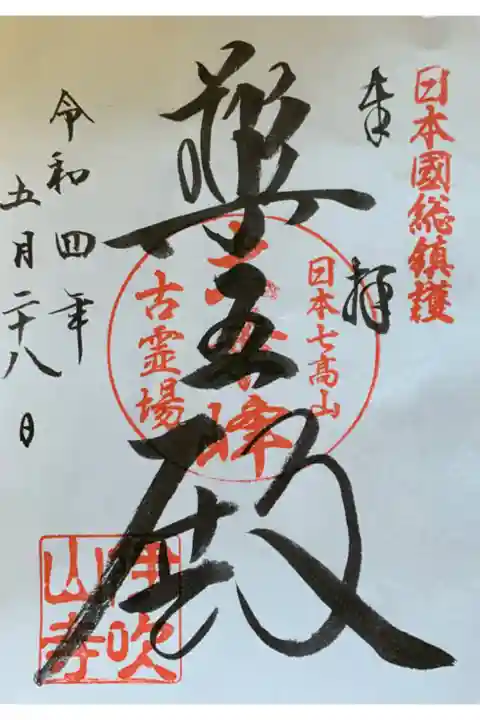 日本國総鎮護
奉拝
日本七高山
薬王殿
古霊場
令和四年
五月二十八日
伊吹山寺